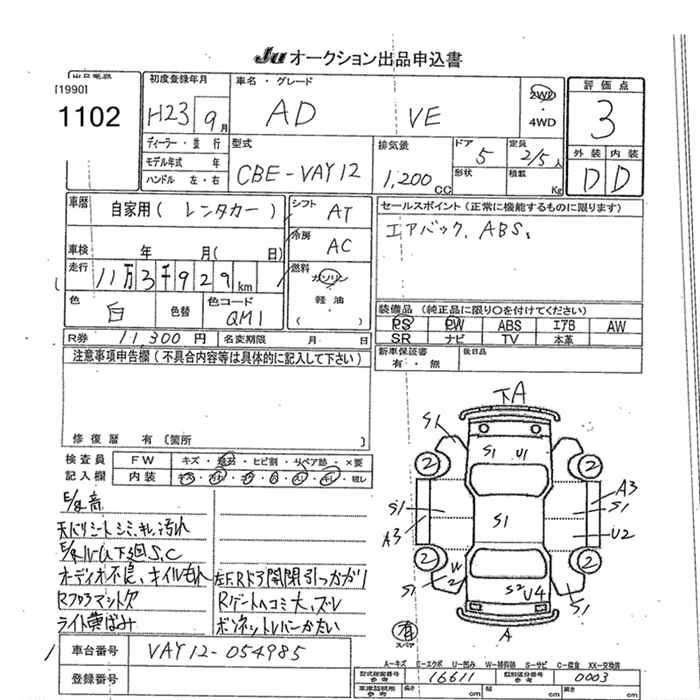 Ju オークション出品申込書
[1990]
1102
初度登録年月
H23 9月
ディーラー・並行
モデル年式 年
ハンドル 左・右
車名・グレード
AD VE
2WD
・
4WD
評価点
3
外装 内装
D D
型式
CBE-VAY12
排気量
1,200cc
ドア
5
形状
定員
2/5人
積載
Kg
車歴
自家用 ( レンタカー )
車検 年 月( 日)
走行
11万3千929km
色
白
色替
色コード
QM1
シフト
AT
冷房
AC
燃料
ガソリン
軽油
( )
セールスポイント (正常に機能するものに限ります)
エアバック、ABS、
装備品 (純正品に限り○を付けてください)
PS PW ABS エアB AW
SR ナビ TV 本革
新車保証書
有・無
後日品
R券 11,300円 名変期限 月 日
注意事項申告欄 (不具合内容等は具体的に記入して下さい)
修復歴 有 〔箇所 〕
検査員
記入欄
FW キズ・ ・ヒビ割・リペア跡・×要
内装
E/g音
天バリシートシミ、キレ、汚れ
下廻S,C
オーディオ不良、オイルもれ
左F,Rドア開閉引っかかり
Rフロアマット欠
Rゲートヘコミ大、ズレ
ライト黄ばみ
ボンネットレバーかたい
車台番号 VAY12-054985
登録番号
下A
S1
S1 U1
2 2
S1 A3
S1 S1
A3 U2
2 2
W2
S1
S2 U4
S1
A
有
スペア
A-キズ E-エクボ U-凹み W-補修跡 S-サビ C-腐食 XX-交換済
型式指定番号
参考
16611
類別区分番号
参考
0003
車庫証明用
参考
長さ cm cm cm